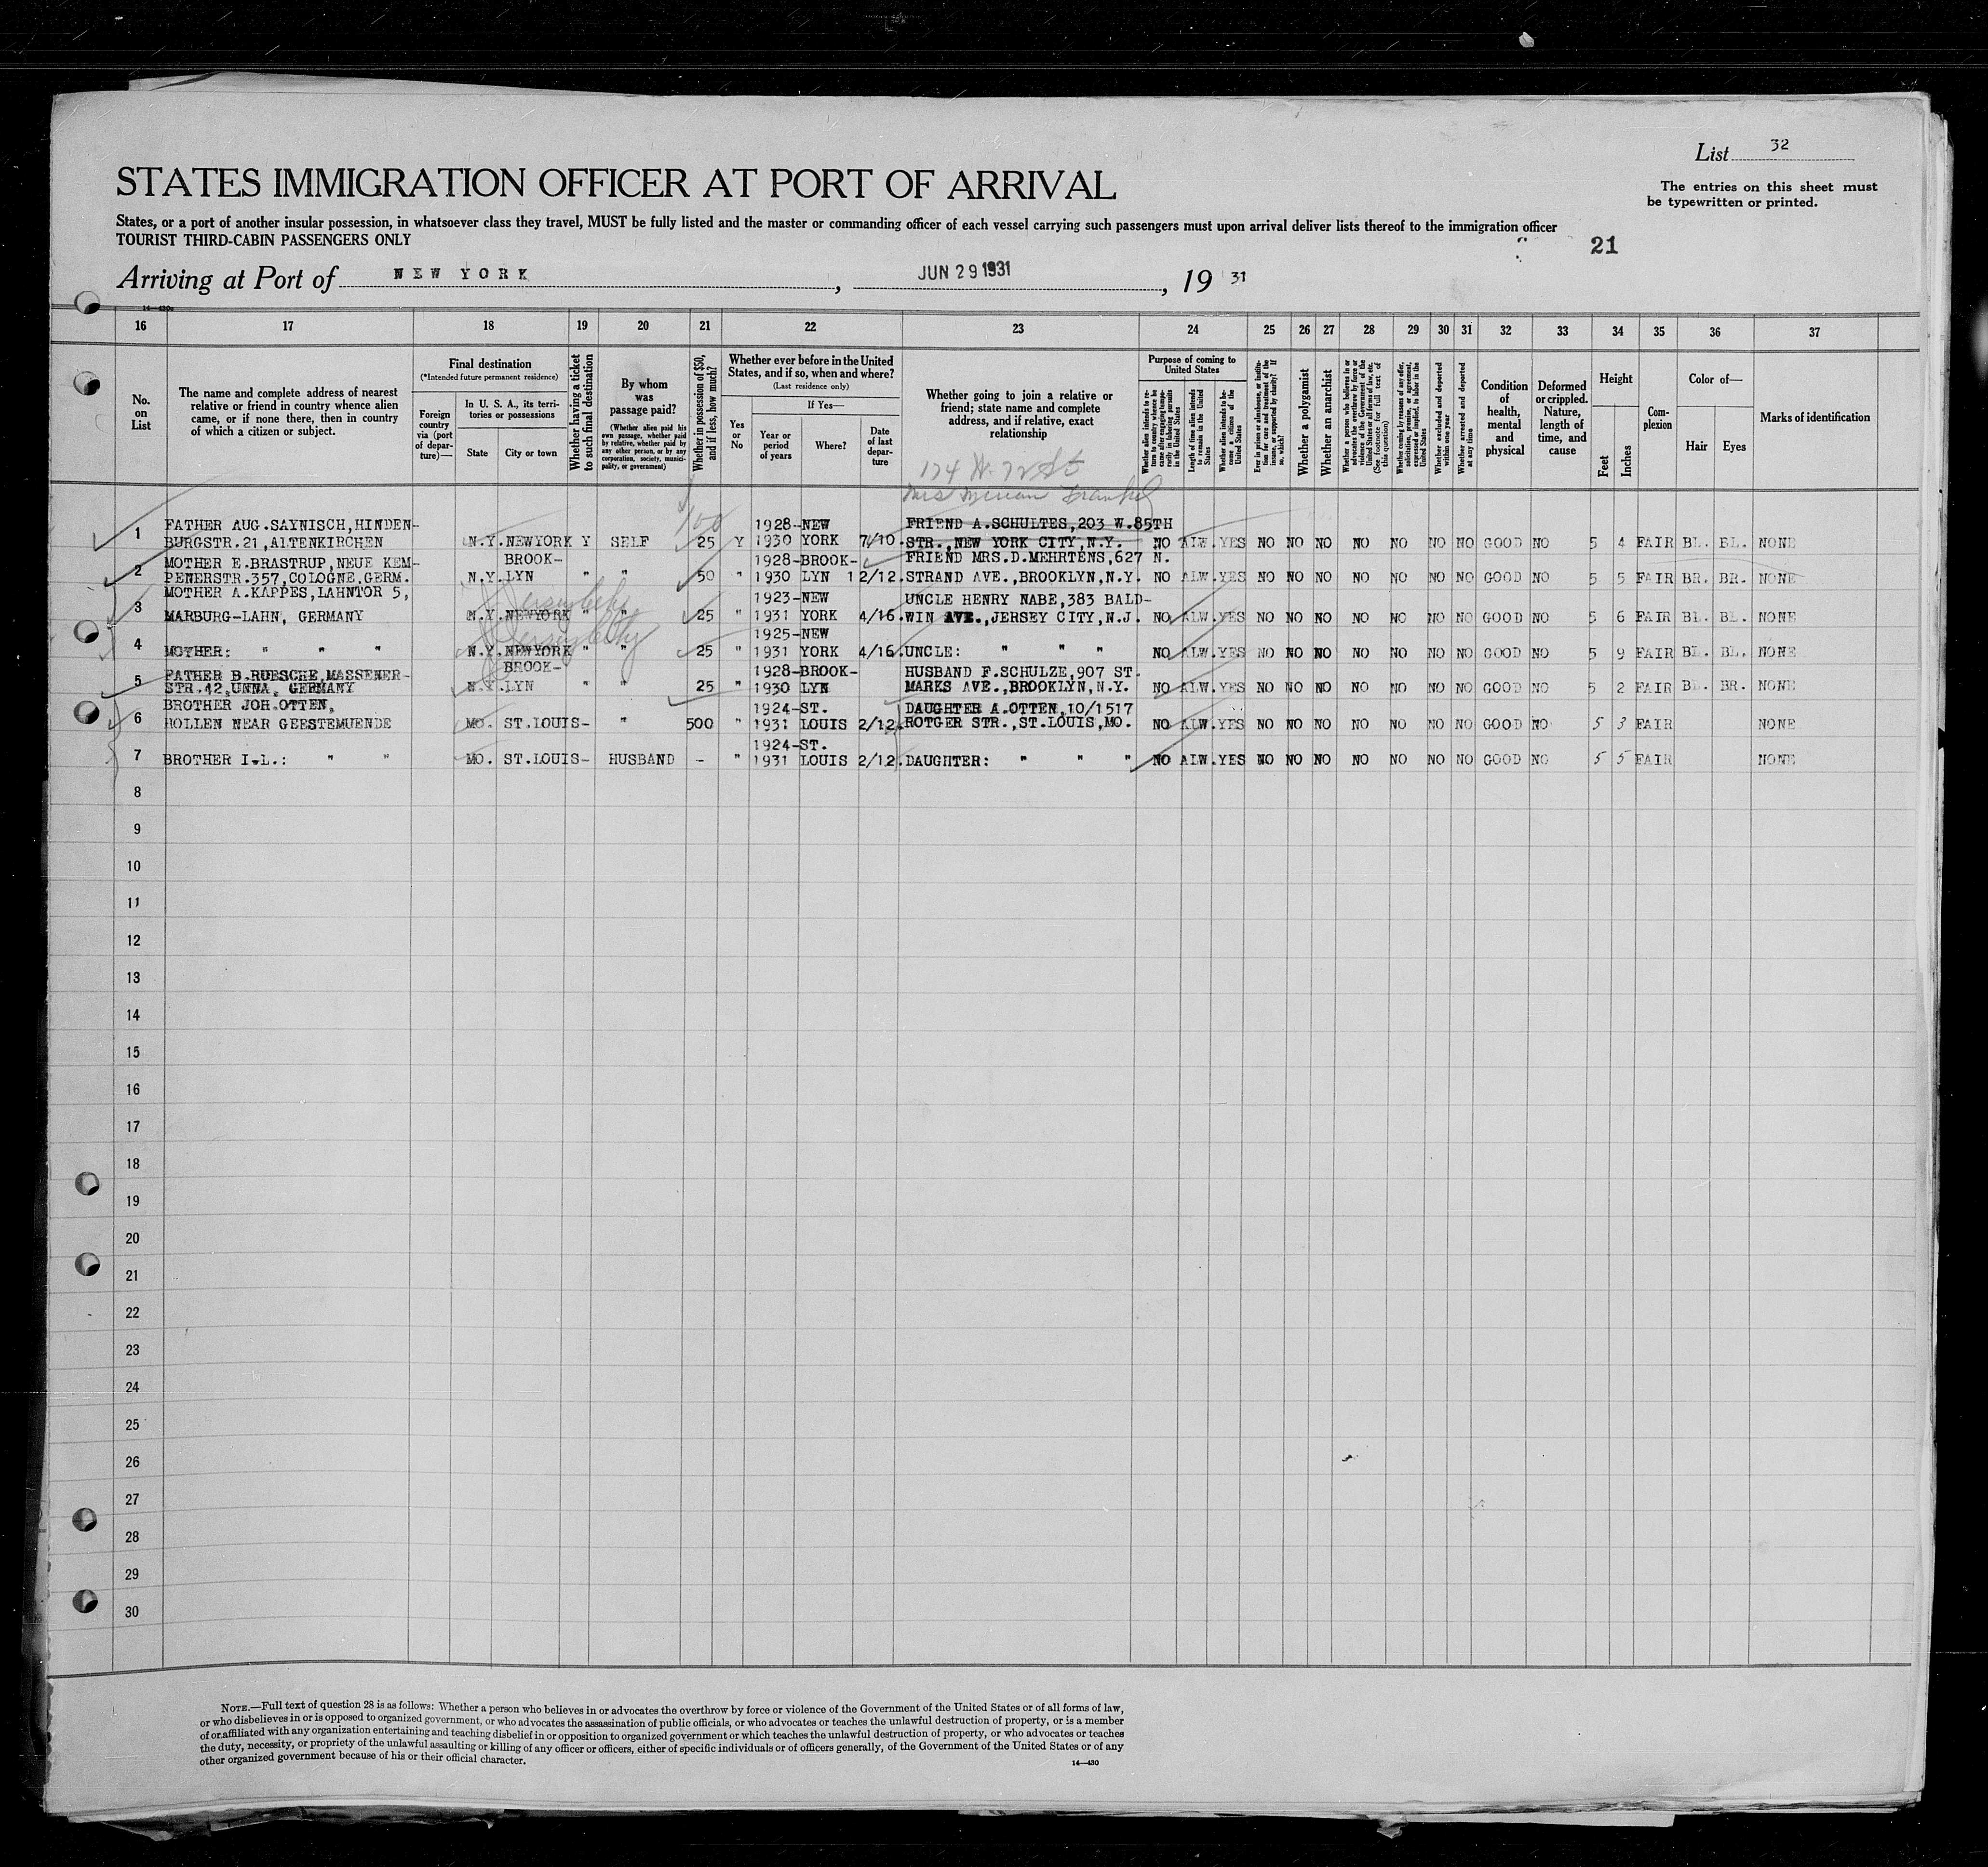 List 32
The entries on this sheet must
be typewritten or printed.
STATES IMMIGRATION OFFICER AT PORT OF ARRIVAL
States, or a port of another insular possession, in whatsoever class they travel, MUST be fully listed and the master or commanding officer of each vessel carrying such passengers must upon arrival deliver lists thereof to the immigration officer
TOURIST THIRD-CABIN PASSENGERS ONLY
21
Arriving at Port of NEW YORK, JUN 29 1931, 19 31
14—430
16 17 18 19 20 21 22 23 24 25 26 27 28 29 30 31 32 33 34 35 36 37
No.
on
List
The name and complete address of nearest
relative or friend in country whence alien
came, or if none there, then in country
of which a citizen or subject.
Final destination
(*Intended future permanent residence)
Foreign
country
via (port
of depar-
ture)—
In U. S. A., its terri-
tories or possessions
State City or town
Whether having a ticket
to such final destination
By whom
was
passage paid?
(Whether alien paid his
own passage, whether paid
by relative, whether paid by
any other person, or by any
corporation, society, munici-
pality, or government)
Whether in possession of $50,
and if less, how much?
Whether ever before in the United
States, and if so, when and where?
(Last residence only)
Yes
or
No
If Yes—
Year or
period
of years
Where?
Date
of last
depar-
ture
Whether going to join a relative or
friend; state name and complete
address, and if relative, exact
relationship
Purpose of coming to
United States
Whether alien intends to re-
turn to country whence he
came after engaging tempo-
rarily in laboring pursuits
in the United States
Length of time alien intends
to remain in the United
States
Whether alien intends to be-
come a citizen of the
United States
Ever in prison or almshouse, or institu-
tion for care and treatment of the
insane, or supported by charity? If
so, which?
Whether a polygamist
Whether an anarchist
Whether a person who believes in or
advocates the overthrow by force or
violence of the Government of the
United States or all forms of law, etc.
(See footnote for full text of
this question)
Whether coming by reason of any offer,
solicitation, promise, or agreement,
expressed or implied, to labor in the
United States
Whether excluded and deported
within one year
Whether arrested and deported
at any time
Condition
of
health,
mental
and
physical
Deformed
or crippled.
Nature,
length of
time, and
cause
Height
Feet Inches
Com-
plexion
Color of—
Hair Eyes
Marks of identification
174 W. 72 St
Mrs
100
FATHER AUG.SAYNISCH,HINDEN- 1928-NEW FRIEND A.SCHULTES,203 W.85TH
1 BURGSTR.21,ALTENKIRCHEN N.Y. NEWYORK Y SELF 25 Y 1930 YORK 7/10. STR.,NEW YORK CITY,N.Y. NO ALW. YES NO NO NO NO NO NO NO GOOD NO 5 4 FAIR BL. BL. NONE
MOTHER E.BRASTRUP,NEUE KEM- BROOK- 1928-BROOK- FRIEND MRS.D.MEHRTENS,627 N.
2 PENERSTR.357,COLOGNE,GERM. N.Y. LYN " " 50 " 1930 LYN 12/12. STRAND AVE.,BROOKLYN,N.Y. NO ALW. YES NO NO NO NO NO NO NO GOOD NO 5 5 FAIR BR. BR. NONE
MOTHER A.KAPPES,LAHNTOR 5, Jersey City 1923-NEW UNCLE HENRY NABE,383 BALD-
3 MARBURG-LAHN, GERMANY N.Y. NEWYORK " " 25 " 1931 YORK 4/16. WIN AVE.,JERSEY CITY,N.J. NO ALW. YES NO NO NO NO NO NO NO GOOD NO 5 6 FAIR BL. BL. NONE
Jersey City 1925-NEW
4 MOTHER: " " " N.Y. NEWYORK " " 25 " 1931 YORK 4/16. UNCLE: " " " NO ALW. YES NO NO NO NO NO NO NO GOOD NO 5 9 FAIR BL. BL. NONE
FATHER B.RUESCHE,MASSENER- BROOK- 1928-BROOK- HUSBAND F.SCHULZE,907 ST.
5 STR.42,UNNA, GERMANY N.Y. LYN " " 25 " 1930 LYN MARKS AVE.,BROOKLYN,N.Y. NO ALW. YES NO NO NO NO NO NO NO GOOD NO 5 2 FAIR BL. BR. NONE
BROTHER JOH.OTTEN, 1924-ST. DAUGHTER A.OTTEN,10/1517
6 HOLLEN NEAR GEESTEMUENDE MO. ST.LOUIS- " 500 " 1931 LOUIS 2/12. ROTGER STR.,ST.LOUIS,MO. NO ALW. YES NO NO NO NO NO NO NO GOOD NO 5 3 FAIR NONE
1924-ST.
7 BROTHER I.L.: " " MO. ST.LOUIS- HUSBAND - " 1931 LOUIS 2/12. DAUGHTER: " " " NO ALW. YES NO NO NO NO NO NO NO GOOD NO 5 5 FAIR NONE
8
9
10
11
12
13
14
15
16
17
18
19
20
21
22
23
24
25
26
27
28
29
30
NOTE.—Full text of question 28 is as follows: Whether a person who believes in or advocates the overthrow by force or violence of the Government of the United States or of all forms of law,
or who disbelieves in or is opposed to organized government, or who advocates the assassination of public officials, or who advocates or teaches the unlawful destruction of property, or is a member
of or affiliated with any organization entertaining and teaching disbelief in or opposition to organized government or which teaches the unlawful destruction of property, or who advocates or teaches
the duty, necessity, or propriety of the unlawful assaulting or killing of any officer or officers, either of specific individuals or of officers generally, of the Government of the United States or of any
other organized government because of his or their official character.
14—430